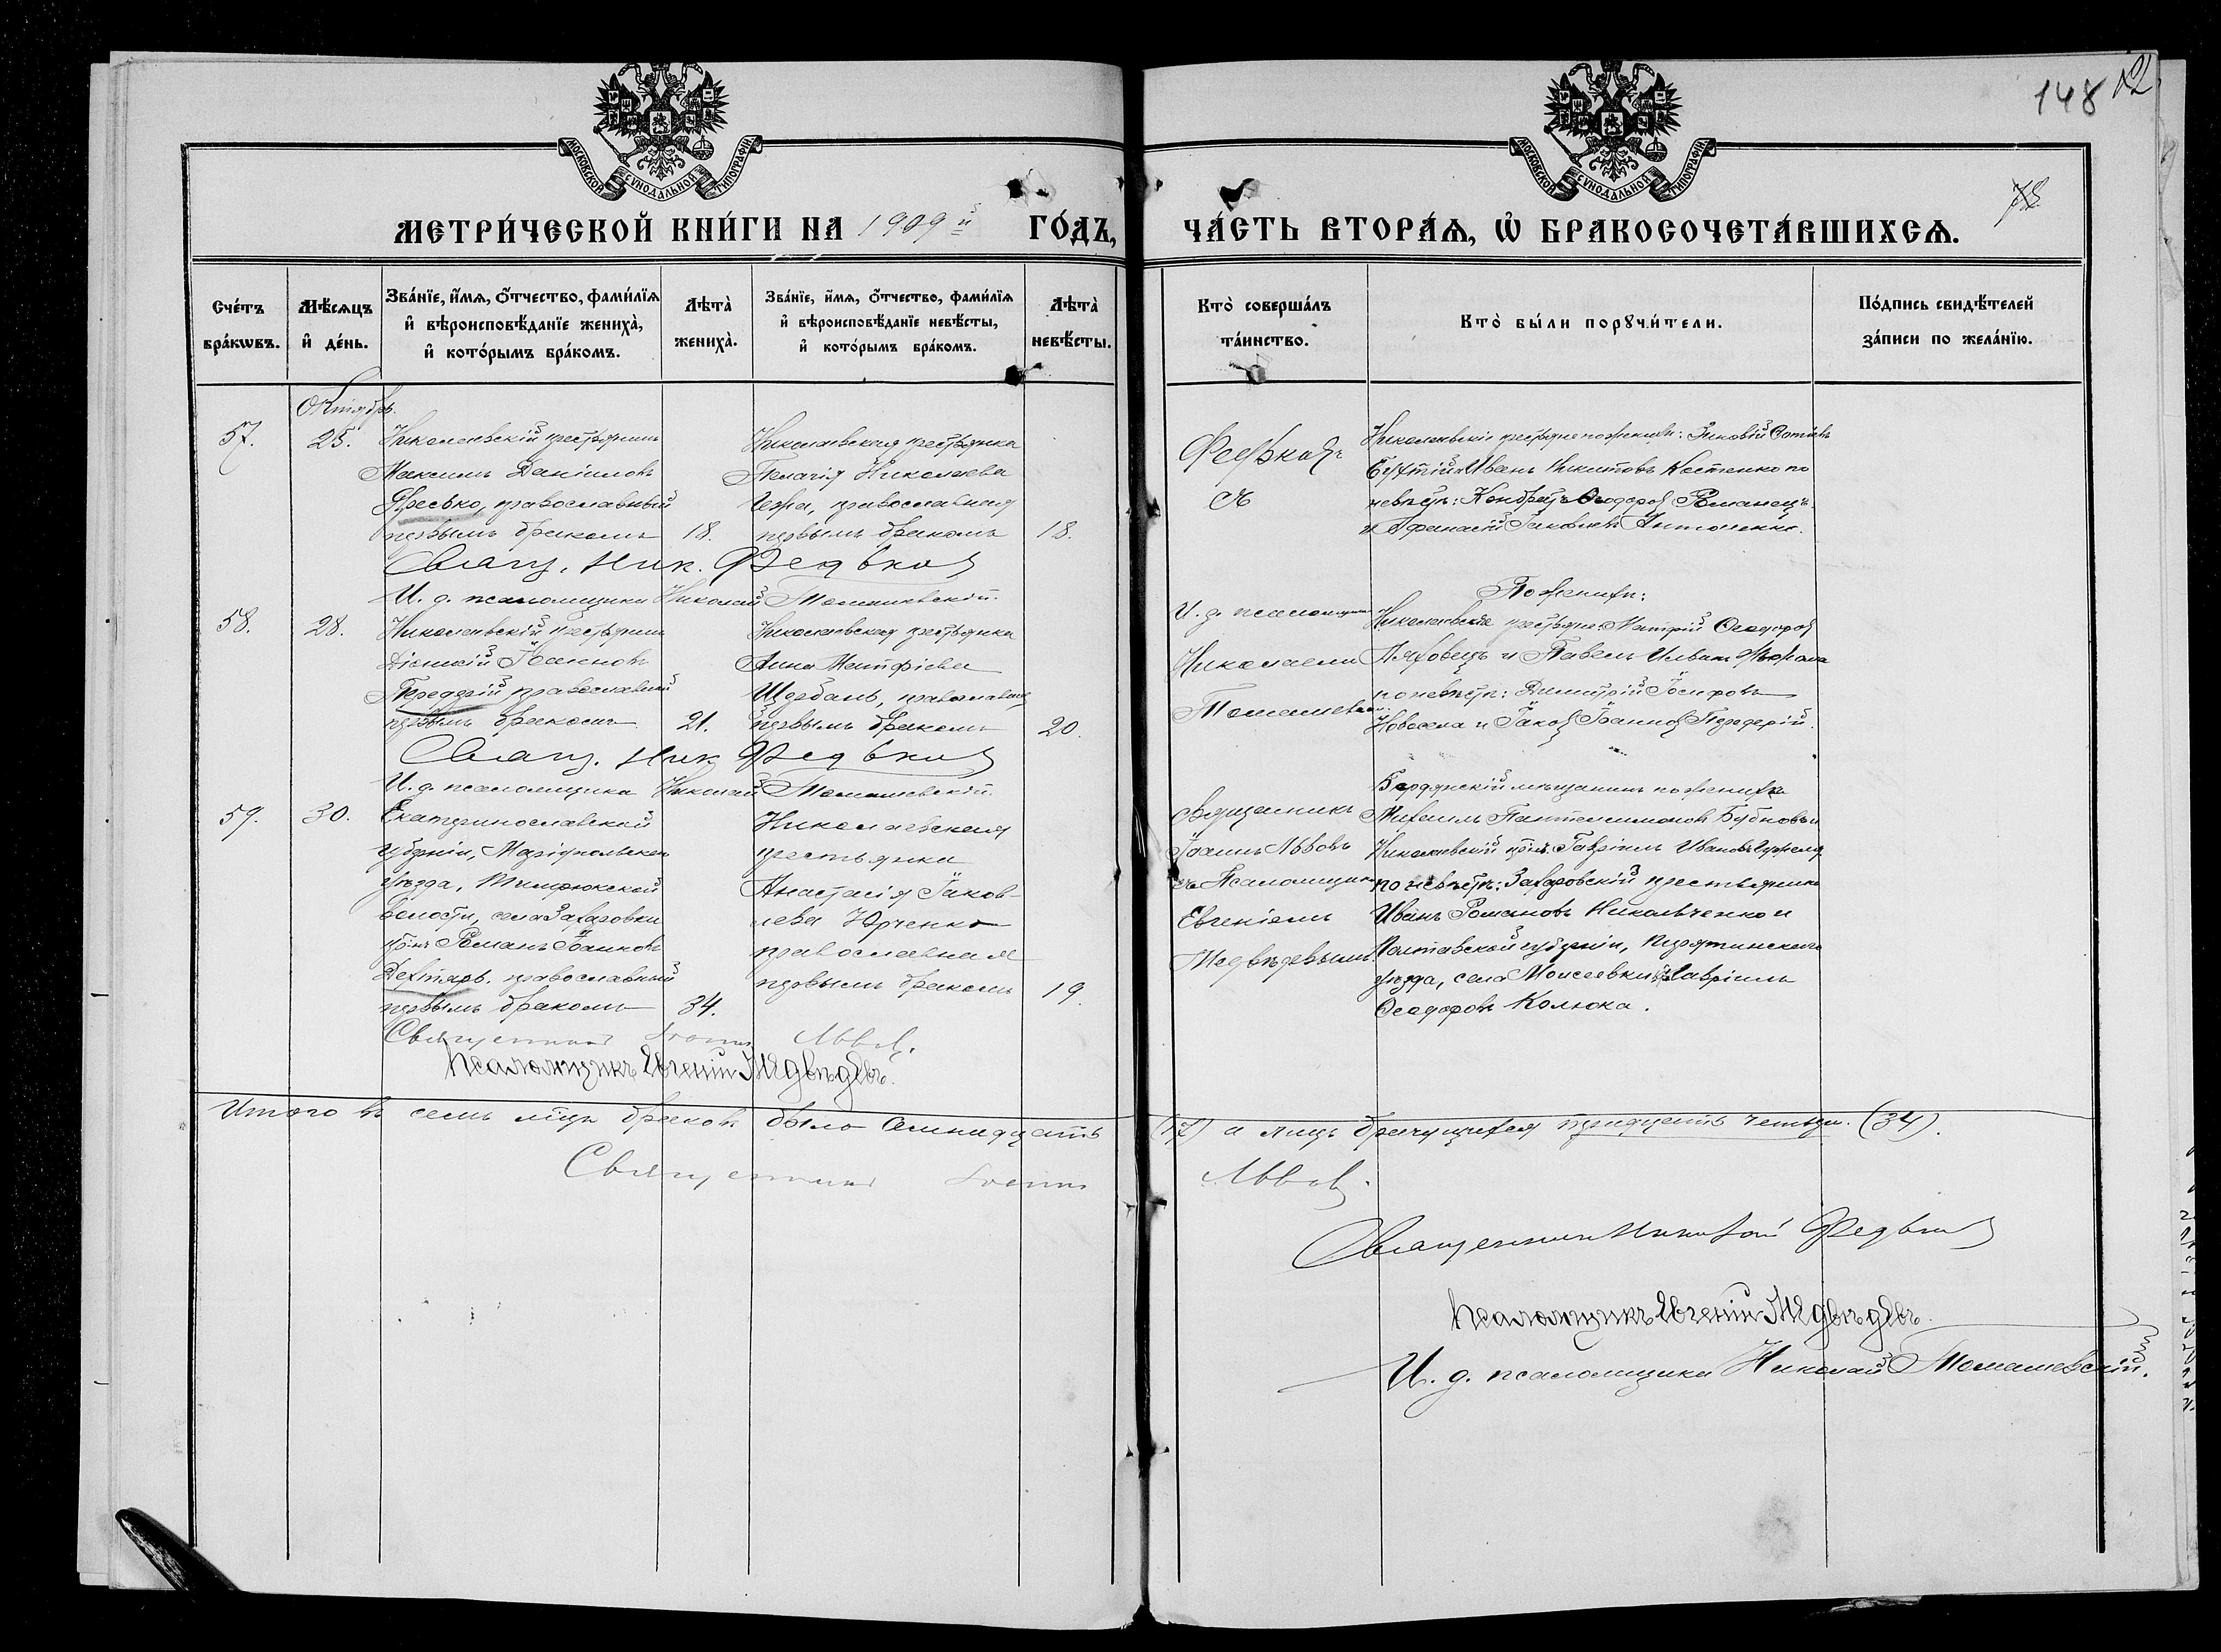 148
МОСКОВСКОЙ СУНОДАЛЬНОЙ ТИПОГРАФІИ
МОСКОВСКОЙ СУНОДАЛЬНОЙ ТИПОГРАФІИ
МЕТРИ́ЧЕСКОЙ КНИ́ГИ НА 1909й ГО́ДЪ,
ЧА́СТЬ ВТОРА́Ѧ, Ѡ҆ БРАКОСОЧЕТА́ВШИХСѦ.
Сче́тъ бра́кѡвъ.
Мѣ́сѧцъ и҆ де́нь.
Зва́нїе, и҆́мѧ, ѻ҆́тчество, фами́лїѧ
и҆ вѣроисповѣ́данїе жениха̀,
и҆ кото́рымъ бра́комъ.
Лѣта̀ жениха̀.
Зва́нїе, и҆́мѧ, ѻ҆́тчество, фами́лїѧ
и҆ вѣроисповѣ́данїе невѣ́сты,
и҆ кото́рымъ бра́комъ.
Лѣта̀ невѣ́сты.
Кто̀ соверша́лъ та́инство.
Кто̀ бы́ли порꙋчи́тели.
По́дпись свидѣ́телей за́писи по жела́нїю.
Октябрь.
57.
25.
Николаевскій крестьянинъ
Максимъ Даніиловъ
Яресько, православный
первымъ бракомъ
18.
Николаевская крестьянка
Пелагія Николаева
православная
первымъ бракомъ
18.
Федькавъ
съ
Николаевскіе крестьяне по женихѣ: Зиновій
Иванъ Никитовъ Костенко по
невѣстѣ: Кондратъ Ѳеодоровъ Романецъ
и Афанасій Іаковлевъ Антоненко.
Свящ. Ник. Федьковъ
И. д. псаломщика Николай Томашевскій.
58.
28.
Николаевскій крестьянинъ
Діонисій Іоанновъ
Передерій православный
первымъ бракомъ
21.
Николаевская крестьянка
Анна Митрофанова
Щербань, православная
первымъ бракомъ
20.
И. д. псаломщика
Николаемъ
Томашевскимъ.
По женихѣ:
Николаевскіе крестьяне: Ѳеодоровъ
Ляховецъ и Павелъ
по невѣстѣ: Димитрій Іосифовъ
Новосела и Іаковъ Іоанновъ Передерій.
Свящ. Ник Федьковъ
И. д. псаломщика Николай Томашевскій.
59.
30.
Екатеринославской
губерніи, Маріупольскаго
уѣзда, Темрюкской
волости, села Захаровки
кр-нъ Романъ Іоанновъ
Дехтярь, православный
первымъ бракомъ
34.
Николаевская
крестьянка
Анастасія Іаков-
лева Юрченко
православная
первымъ бракомъ
19.
Священникъ
Іоаннъ Львовъ
съ Псаломщик.
Евгеніемъ
Медвѣдевымъ
Бердянскій мѣщанинъ по женихѣ
Михаилъ Пантелеимоновъ Бубновъ и
Николаевскій кр-нъ Гавріилъ Ивановъ
по невѣстѣ: Захаровскій крестьянинъ
Иванъ Романовъ Николаенко и
Полтавской губерніи, Пирятинскаго
уѣзда, села Моисеевки Гавріилъ
Ѳеодоровъ Колюка.
Священникъ Іоаннъ Львовъ.
Псаломщикъ Евгеній Медвѣдевъ.
Итого въ семъ м-цѣ браковъ было семнадцать (17) а лицъ брачущихся тридцать четыре. (34).
Священникъ Іоаннъ Львовъ.
Священникъ Николай Федьковъ
Псаломщикъ Евгеній Медвѣдевъ.
И. д. псаломщика Николай Томашевскій.